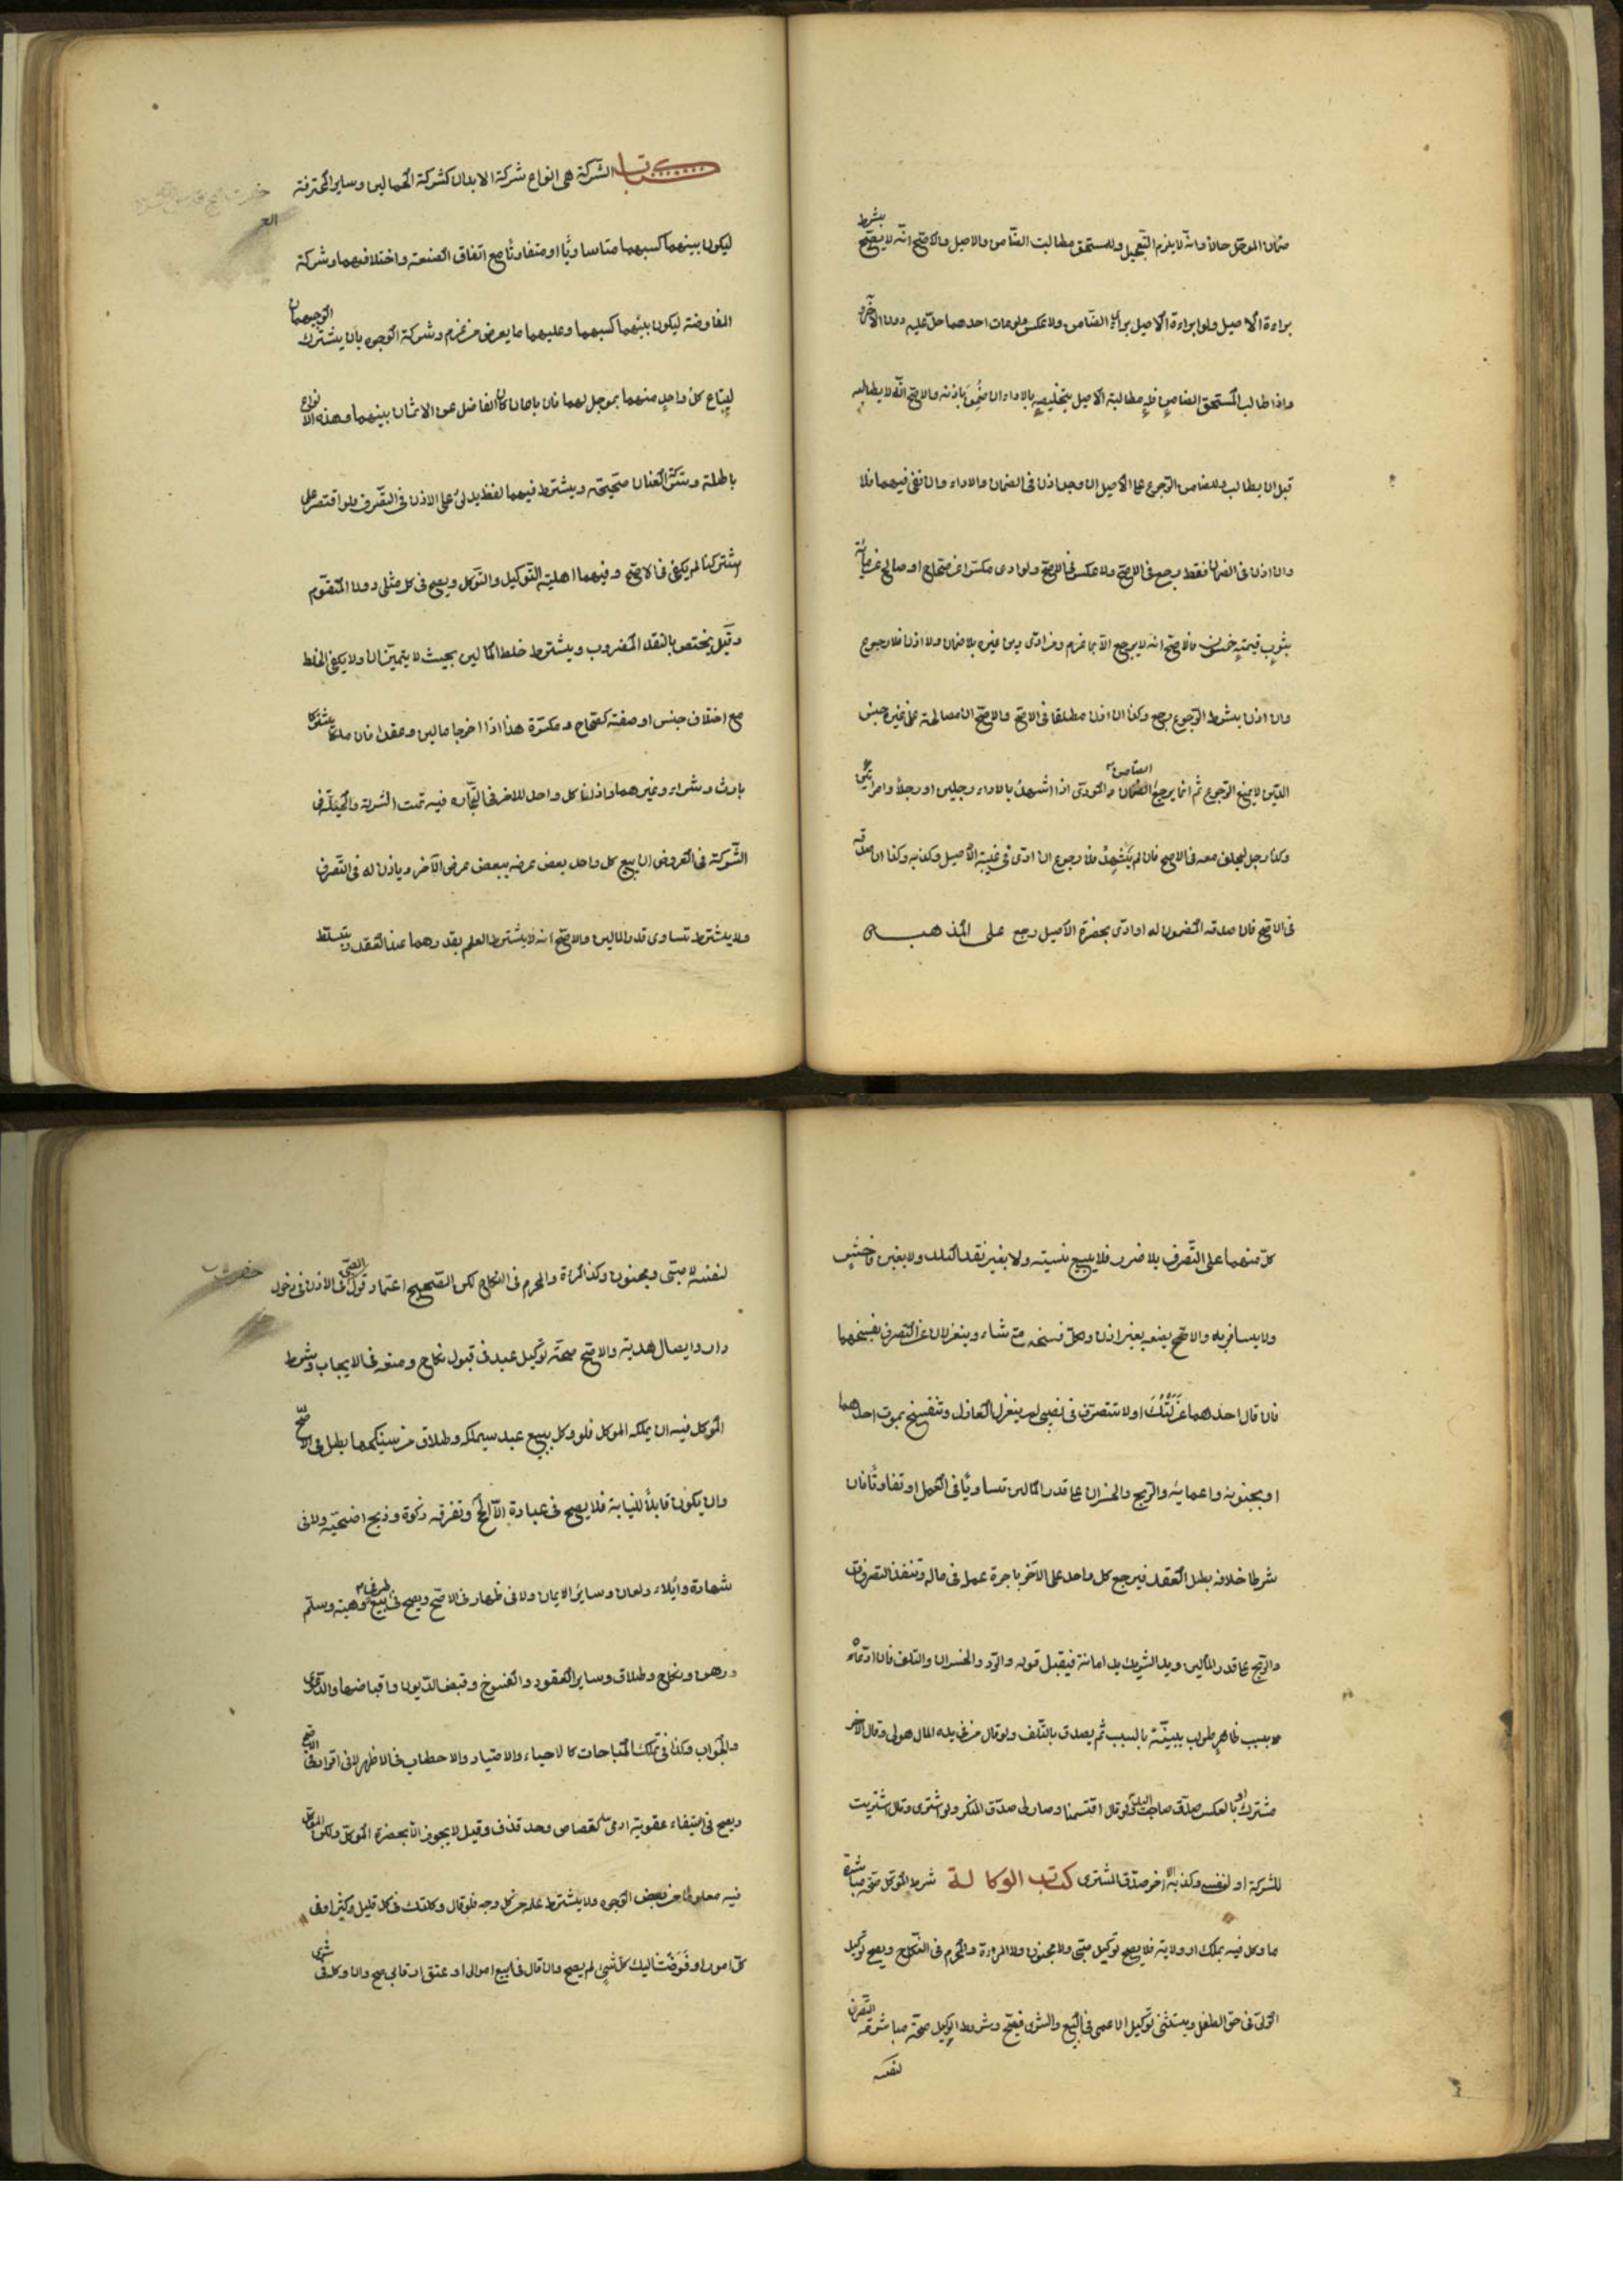 ضمان المؤجل حالا وانه لا يلزم التعجيل وللمستحق مطالبت الضامن والاصيل والاصح انه لا يصح بشرط
براءة الاصيل ولو ابراءة الاصيل برئ الضامن ولا عكس ولو مات احدهما حل عليه دون الآخر
واذا طالب المستحق الضامن فله مطالبة الاصيل بتخليصه بالاداء ان ضمن باذنه والاصح انه لا يطالبه
قبل ان يطالب وللضامن الرجوع على الاصيل ان وجد اذن في الضمان والاداء وان نفى فيهما فلا
وان اذن في الضمان فقط رجع في الاصح ولا عكس في الاصح ولو ادى مكسرا عن صحاح او صالح عن مائة
بثوب قيمته خمسون فالاصح انه لا يرجع الا بما غرم ومن ادى دين غيره بلا ضمان ولا اذن فلا رجوع
وان اذن بشرط الرجوع رجع وكذا ان اذن مطلقا في الاصح والاصح ان مصالحته على غير جنس
الدين لا يمنع الرجوع ثم انما يرجع الضامن والمؤدى اذا اشهد بالاداء رجلين او رجلا وامراتين
وكذا رجل ليحلف معه في الاصح فان لم يشهد فلا رجوع ان ادى في غيبة الاصيل وكذبه وكذا ان صدقه
في الاصح فان صدقه المضمون له او ادى بحضرة الاصيل رجع على المذهب
كتاب الشركة هى انواع شركة الابدان كشركة الحمالين وساير المحترفة
ليكون بينهما كسبهما متساويا او متفاوتا مع اتفاق الصنعة واختلافهما وشركة
المفاوضة ليكون بينهما كسبهما وعليهما ما يعرض من غرم وشركة الوجوه بان يشترك الوجيهان
ليبتاع كل واحد منهما بموجل لهما فان باعا كان الفاضل عن الاثمان بينهما وهذه الانواع
باطلة وشركة العنان صحيحة ويشترط فيهما لفظ يدل على الاذن في التصرف فلو اقتصر على
اشتركنا لم يكفى في الاصح وفيهما اهلية التوكيل والتوكل ويصح في كل مثلى دون المتقوم
وقيل يختص بالنقد المضروب ويشترط خلط المالين بحيث لا يتميزان ولا يكفى الخلط
مع اختلاف جنس او صفة كصحاح ومكسرة هذا اذا اخرجا مالين وعقدا فان ملكا مشتركا
بارث وشراء وغيرهما واذن كل واحد للاخر في التجارة فيه تمت الشركة والحيلة في
الشركة في العروض ان يبيع كل واحد بعض عرضه ببعض عرض الآخر وياذن له في التصرف
ولا يشترط تساوى قدر المالين والاصح انه لا يشترط العلم بقدرهما عند العقد ويتسلط
كل منهما على التصرف بلا ضرر فلا يبيع نسيته ولا بغير نقد البلد ولا بغبن فاحش
ولا يسافر به ولا يبضعه بغير اذن ولكل فسخه متى شاء وينعزلان عن التصرف بفسخهما
فان قال احدهما عزلتك او لا تتصرف في نصيبى لم ينعزل العازل وتنفسخ بموت احدهما
او بجنونه واغمائه والربح والخسران على قدر المالين تساويا في العمل او تفاوتا فان
شرطا خلافه بطل العقد فيرجع كل واحد على الآخر باجرة عمله في ماله وتنفذ التصرفات
والربح على قدر المالين ويد الشريك يد امانة فيقبل قوله والرد والخسران والتلف فان ادعاه
بسبب ظاهر طولب ببينة بالسبب ثم يصدق بالتلف ولو قال من في يده المال هو لى وقال الآخر
مشترك او بالعكس صدق صاحب اليد ولو قال اقتسمنا وصار لى صدق المنكر ولو اشترى وقال اشتريت
للشركة او لنفسى وكذبه الآخر صدق المشترى كتاب الوكالة شرط الموكل صحة مباشرة
ما وكل فيه بملك او ولاية فلا يصح توكيل صبى ولا مجنون ولا المرءة والمحرم في النكاح ويصح توكيل
الولى في حق الطفل ويستثنى توكيل الاعمى في البيع والشرى فيصح وشرط الوكيل صحة مباشرته التصرف
لنفسه
لنفسه لا صبى ومجنون وكذا المراة والمحرم في النكاح لكن الصحيح اعتماد قول الصبى في الاذن في دخول
دار وايصال هدية والاصح صحة توكيل عبد في قبول نكاح ومنعه في الايجاب وشرط
الموكل فيه ان يملكه الموكل فلو وكل ببيع عبد سيملكه وطلاق من سينكحها بطل في الاصح
وان يكون قابلا للنيابة فلا يصح في عبادة الا الحج وتفرقه زكوة وذبح اضحية ولا في
شهادة وايلاء ولعان وساير الايمان ولا في ظهار في الاصح ويصح في طرفى بيع وهبة وسلم
ورهن ونكاح وطلاق وساير العقود والفسوخ وقبض الديون واقباضها والدعوى
والجواب وكذا في تملك المباحات كالاحياء والاصتياد والاحطاب في الاظهر لا في اقرار في الاصح
ويصح في استيفاء عقوبة ادمى كقصاص وحد قذف وقيل لا يجوز الا بحضرة الموكل وليكن الموكل
فيه معلوما من بعض الوجوه ولا يشترط علمه من كل وجه فلو قال وكلتك في كل قليل وكثير او في
كل امورى او فوضت اليك كل شئ لم يصح وان قال في بيع اموالى او عتق ارقابى صح وان وكله في شرى